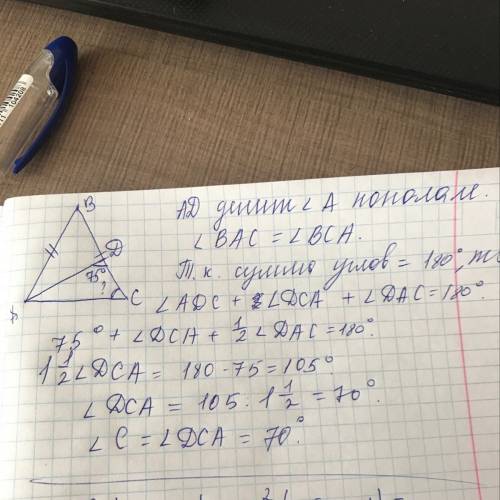 B
AD делит ∠A пополам.
∠BAC = ∠BCA.
Т.к. сумма углов = 180°, то
D
75°
?
A
C
∠ADC + ∠DCA + ∠DAC = 180°.
75° + ∠DCA + 1/2 ∠DAC = 180°.
1 1/2 ∠DCA = 180 - 75 = 105°
∠DCA = 105 · 1 1/2 = 70°.
∠C = ∠DCA = 70°.